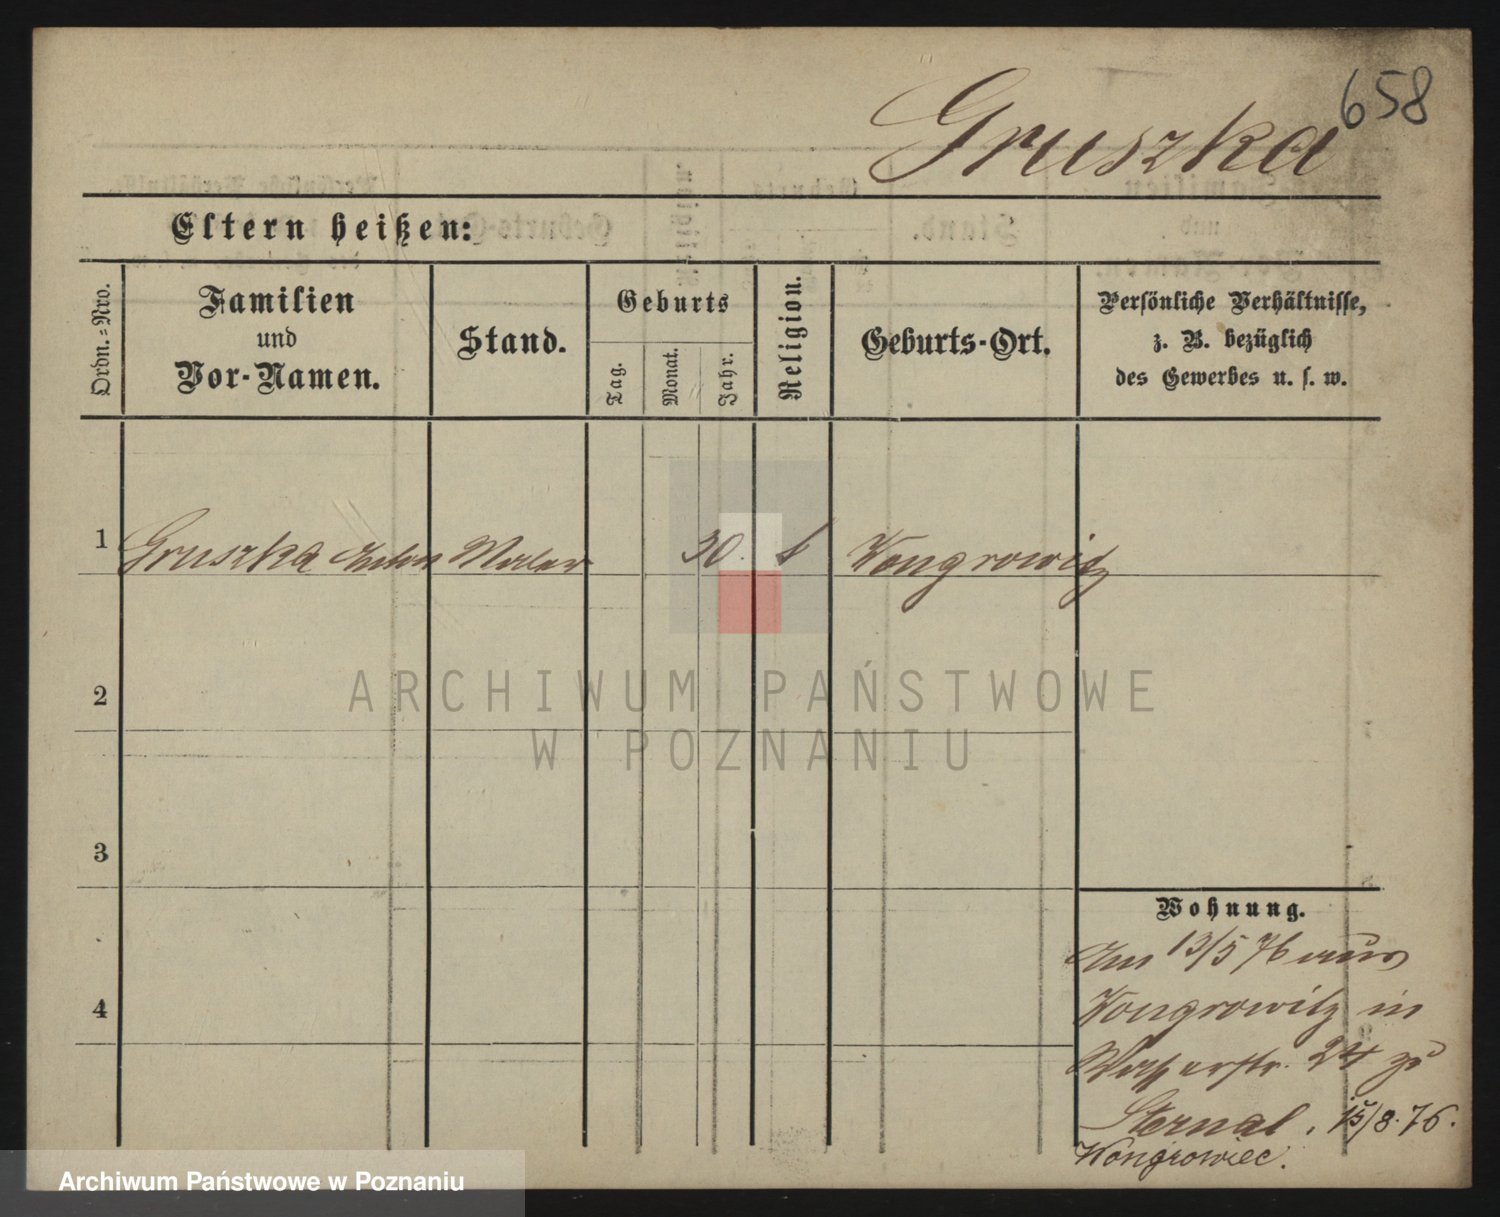 658
Gruszka
Eltern heißen:
Ordn.-Nro.
Familien
und
Vor-Namen.
Stand.
Geburts
Tag.
Monat.
Jahr.
Religion.
Geburts-Ort.
Persönliche Verhältnisse,
z. B. bezüglich
des Gewerbes u. s. w.
1 Gruszka Maler 30. Wongrowitz
2
3
4
Wohnung.
Am 13/5 76 aus
Wongrowitz in
Wasserstr. 24 zu
Sternal. 15/8.76.
Wongrowiec.
ARCHIWUM PAŃSTWOWE
W POZNANIU
Archiwum Państwowe w Poznaniu